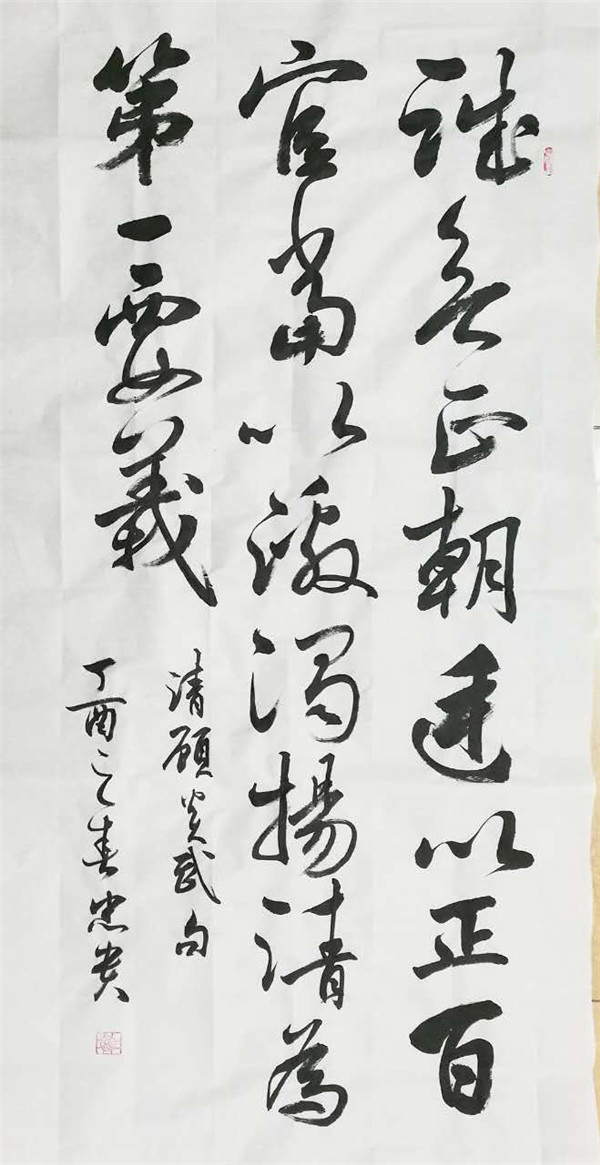 誠欲正朝廷以正百
官當以激濁揚清為
第一要義
清顧炎武句
丁酉之春忠贵